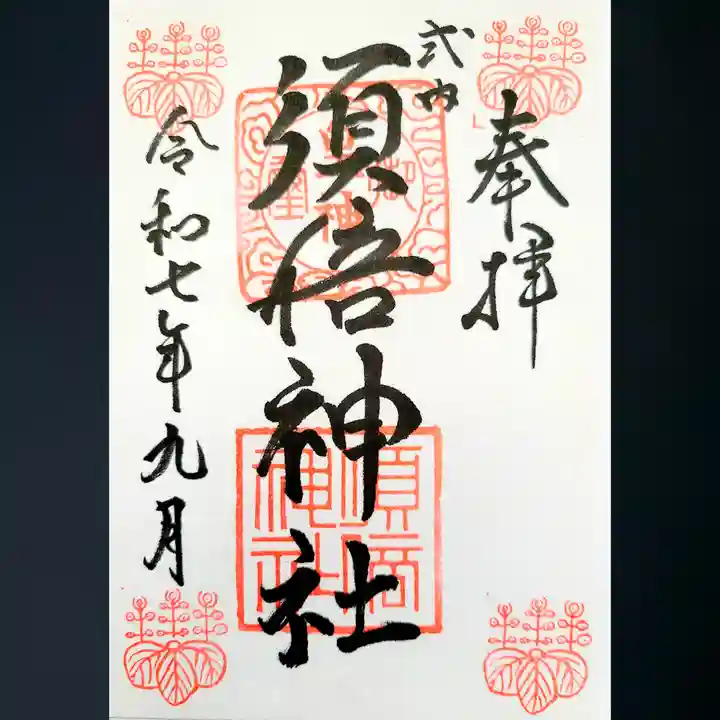 奉拝
式内
須倍神社
令和七年九月
須倍神社